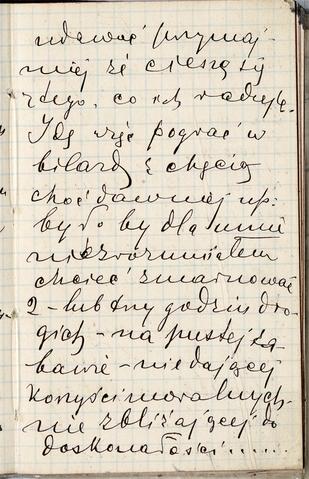 udawać przynaj-
mniej że cieszę się
z tego, co ich raduje.
Idę więc pograć w
bilard z chęcią
choć dawniej np:
było by dla mnie
niezrozumiałem
chcieć zmarnować
2 - lub trzy godzin dro-
gich - na pustej za
bawie - nie dającej
korzyści moralnych -
nie zbliżającej do
doskonałości.....